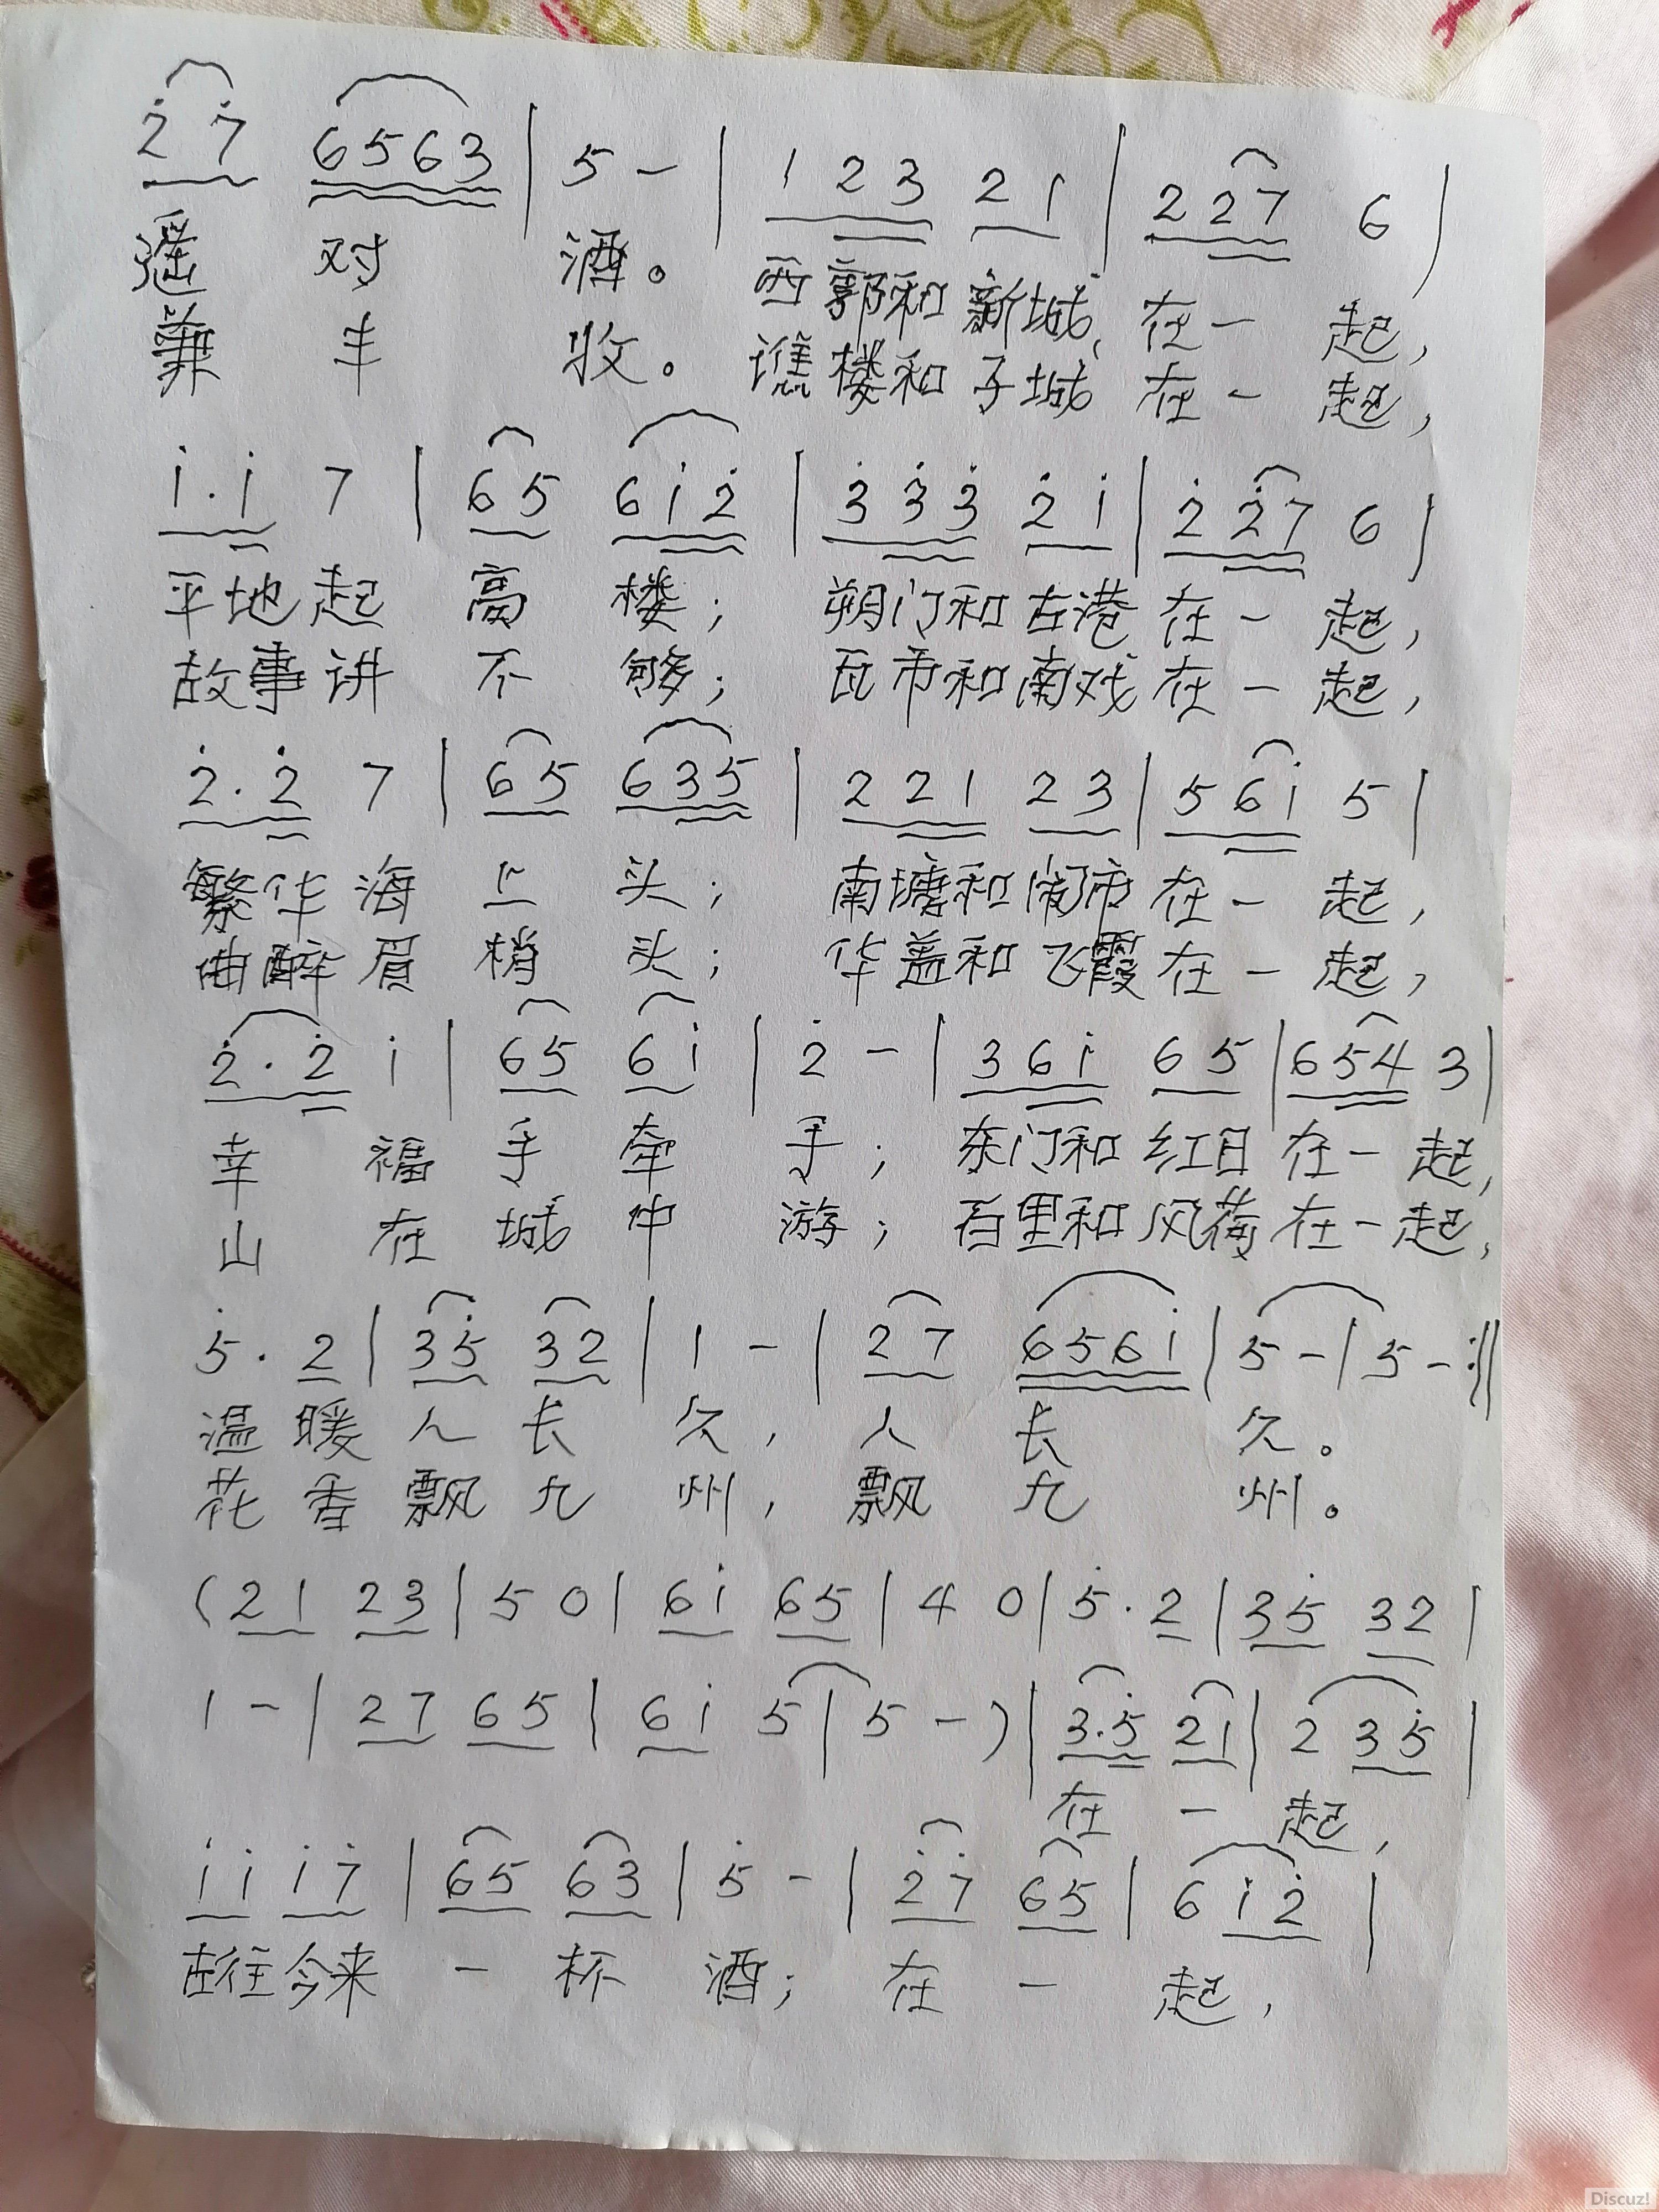 2̇ 7̇ 6563 | 5 - | 1 23 21 | 2 27 6 |
遥 对 酒。 西郭和新城 在一起,
兼 丰 收。 谯楼和子城 在一起,
1̇·1̇ 7 | 65 61̇2̇ | 3̇3̇3̇ 2̇1̇ | 2̇2̇7 6 |
平地起 高 楼; 朔门和古港 在一起,
故事讲 不 够; 瓦市和南戏 在一起,
2̇·2̇ 7 | 65 635 | 221 23 | 561̇ 5 |
繁华海 上 头; 南塘和闹市 在一起,
曲醉眉 梢 头; 华盖和飞霞 在一起,
2̇·2̇ 1̇ | 65 61̇ | 2̇ - | 361̇ 65 | 654 3 |
幸 福 手 牵 手; 东门和红日 在一起,
山 在 城 中 游; 百里和风荷 在一起,
5̇·2 | 35̇ 32 | 1 - | 27 6561̇ | 5 - | 5 - :||
温暖人长久, 人长久。
花香飘九州, 飘九州。
(21 23 | 5 0 | 61̇ 65 | 4 0 | 5̇·2 | 35̇ 32 |
1 - | 27 65 | 61̇ 5 | 5 -) | 3·5̇ 21 | 2 35̇ |
在 一 起,
1̇1̇ 1̇7̇ | 65 63 | 5̇ - | 2̇7̇ 65 | 61̇2̇ |
古往今来 一杯酒; 在 一 起,
Discuz!